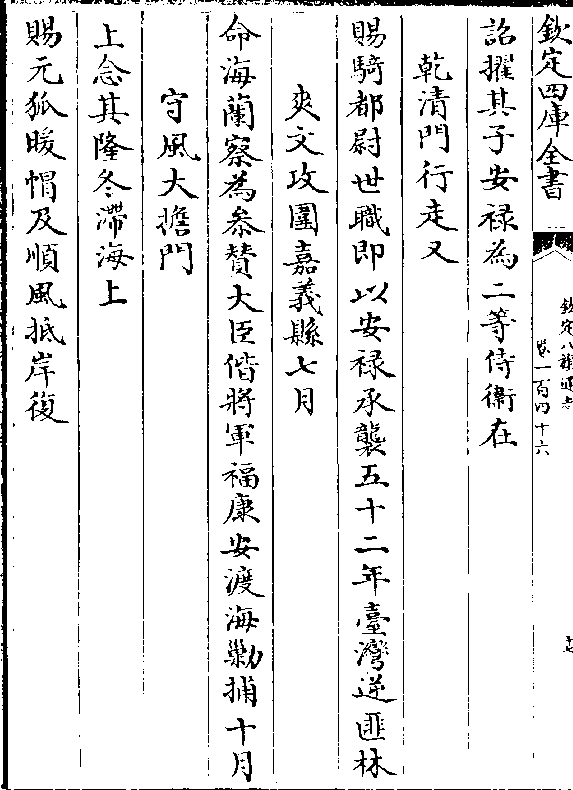 欽定四庫全書
欽定八旗通志
卷一百四十六
詔擢其子安祿為二等侍衛在
乾清門行走又
賜騎都尉世職即以安祿承襲五十二年臺灣逆匪林
爽文攻圍嘉義縣七月
命海蘭察為叅贊大臣偕將軍福康安渡海勦捕十月
守風大擔門
上念其隆冬滯海上
賜元狐暖帽及順風抵岸復